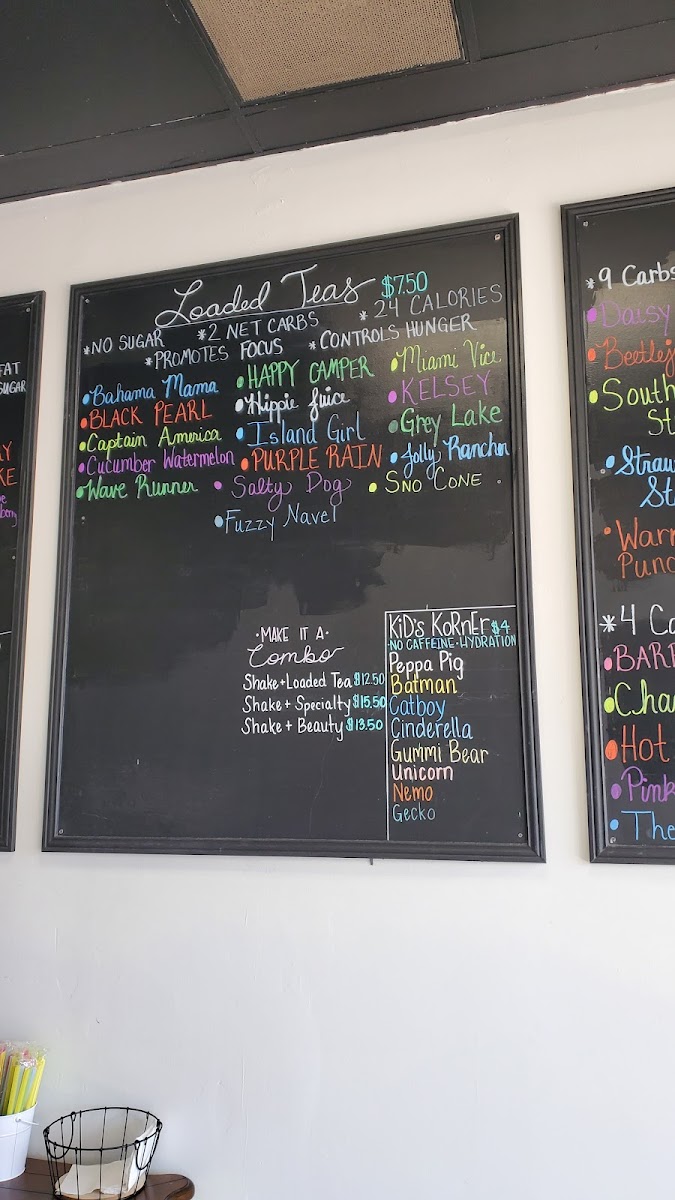 Loaded Teas $7.50
*NO SUGAR *2 NET CARBS *24 CALORIES
*PROMOTES FOCUS *CONTROLS HUNGER
•Bahama Mama
•BLACK PEARL
•Captain America
•Cucumber Watermelon
•Wave Runner
•HAPPY CAMPER
•Hippie Juice
•Island Girl
•PURPLE RAIN
•Salty Dog
•Fuzzy Navel
•Miami Vice
•KELSEY
•Grey Lake
•Jolly Rancher
•SNO CONE
•MAKE IT A•
Combo
Shake+Loaded Tea $12.50
Shake+Specialty $15.50
Shake+Beauty $13.50
KiD's KoRnEr $4
•NO CAFFEINE•HYDRATION
Peppa Pig
Batman
Catboy
Cinderella
Gummi Bear
Unicorn
Nemo
Gecko
FAT
SUGAR
*9 Carbs
•Daisy
•South
•Straw
•Warm
*4
•Hot
•Pink
•The